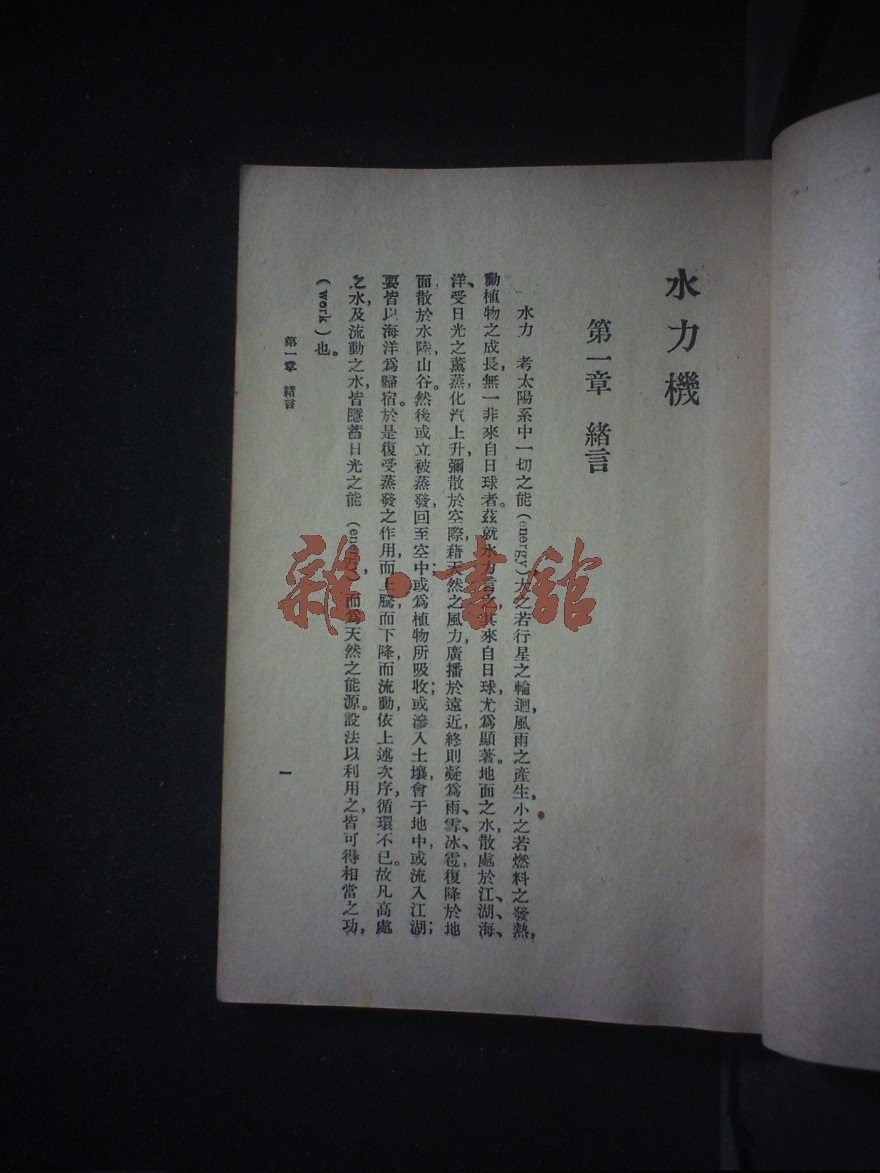 水力機
第一章　緒言
水力　考太陽系中一切之能（energy）大之若行星之輪迴，風雨之產生，小之若燃料之發熱，
動植物之成長，無一非來自日球者。茲就水力言之，其來自日球，尤爲顯著。地面之水，散處於江、湖、海、
洋、受日光之薰蒸，化汽上升，彌散於空際，藉天然之風力，廣播於遠近，終則凝爲雨、雪、冰、雹，復降於地
面，散於水陸山谷。然後或立被蒸發，回至空中；或爲植物所吸收；或滲入土壤，會于地中，或流入江湖；
要皆以海洋爲歸宿。於是復受蒸發之作用，而上騰，而下降，而流動，依上述次序，循環不已。故凡高處
之水，及流動之水，皆隱蓄日光之能（energy），而爲天然之能源。設法以利用之，皆可得相當之功，
（work）也。
第一章　緒言
一
雜·書館